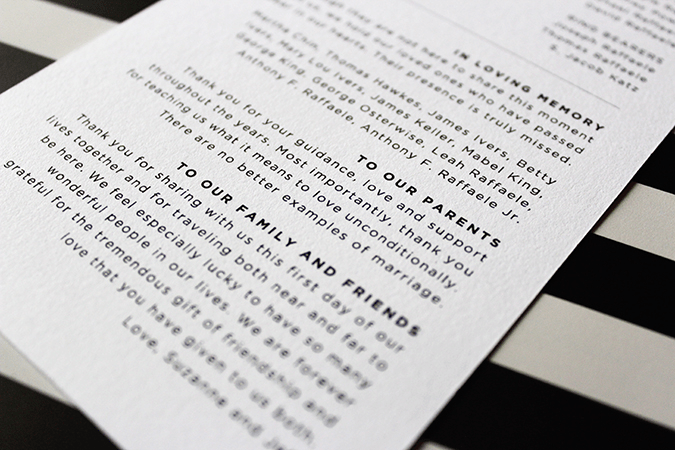 RING BEARERS
Joseph Raffaele
Thomas Raffaele
S. Jacob Katz
IN LOVING MEMORY
they are not here to share this moment
us, we hold our loved ones who have passed
in our hearts. Their presence is truly missed.
Martha Chin, Thomas Hawkes, James Ivers, Betty
Ivers, Mary Lou Ivers, James Keller, Mabel King,
George King, George Osterwise, Leah Raffaele,
Anthony F. Raffaele, Anthony F. Raffaele Jr.
TO OUR PARENTS
Thank you for your guidance, love and support
throughout the years. Most importantly, thank you
for teaching us what it means to love unconditionally.
There are no better examples of marriage.
TO OUR FAMILY AND FRIENDS
Thank you for sharing with us this first day of our
lives together and for traveling both near and far to
be here. We feel especially lucky to have so many
wonderful people in our lives. We are forever
grateful for the tremendous gift of friendship and
love that you have given to us both.
Love, Suzanne and